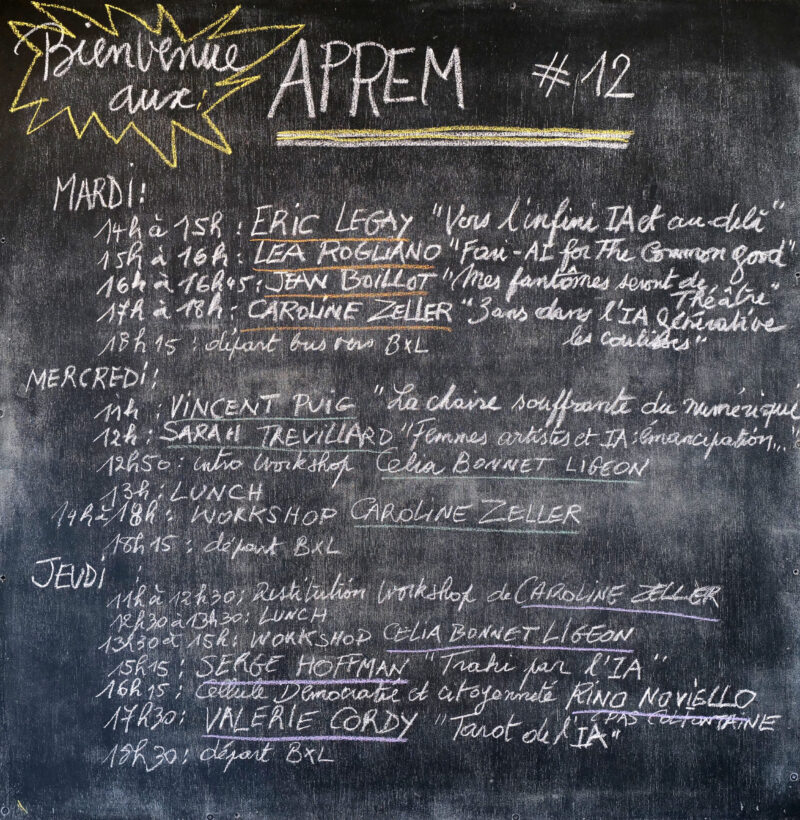 Bienvenue
aux:
APREM #12
MARDI:
14h à 15h: ERIC LEGAY "Vers l'infini IA et au-delà"
15h à 16h: LEA ROGLIANO "Fari-AI for The Common good"
16h à 16h45: JEAN BOILLOT "Mes fantômes seront de
Théâtre"
17h à 18h: CAROLINE ZELLER "3ans dans l'IA générative
les coulisses"
18h15: départ bus vers BXL
MERCREDI:
11h: VINCENT PUIG "La chaire souffrante du numérique
12h: SARAH TREVILLARD "Femmes artistes et IA: émancipation..."
12h50: intro workshop Celia BONNET LIGEON
13h: LUNCH
14h à 18h: WORKSHOP CAROLINE ZELLER
18h15: départ BXL
JEUDI:
11h à 12h30: Restitution Workshop de CAROLINE ZELLER
12h30 à 13h30: LUNCH
13h30 à 15h: WORKSHOP CELIA BONNET LIGEON
15h15: SERGE HOFFMAN "Trahi par l'IA"
16h15: Cellule Démocratie et citoyenneté RINO NOVIELLO
PAS COLONTAINE
17h30: VALERIE CORDY "Tarot de l'IA"
18h30: départ BXL